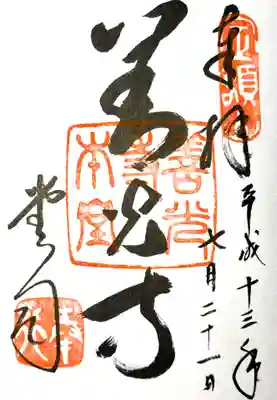 奉拝
平成十三年
七月二十一日
善光寺
善光寺本堂
堂司